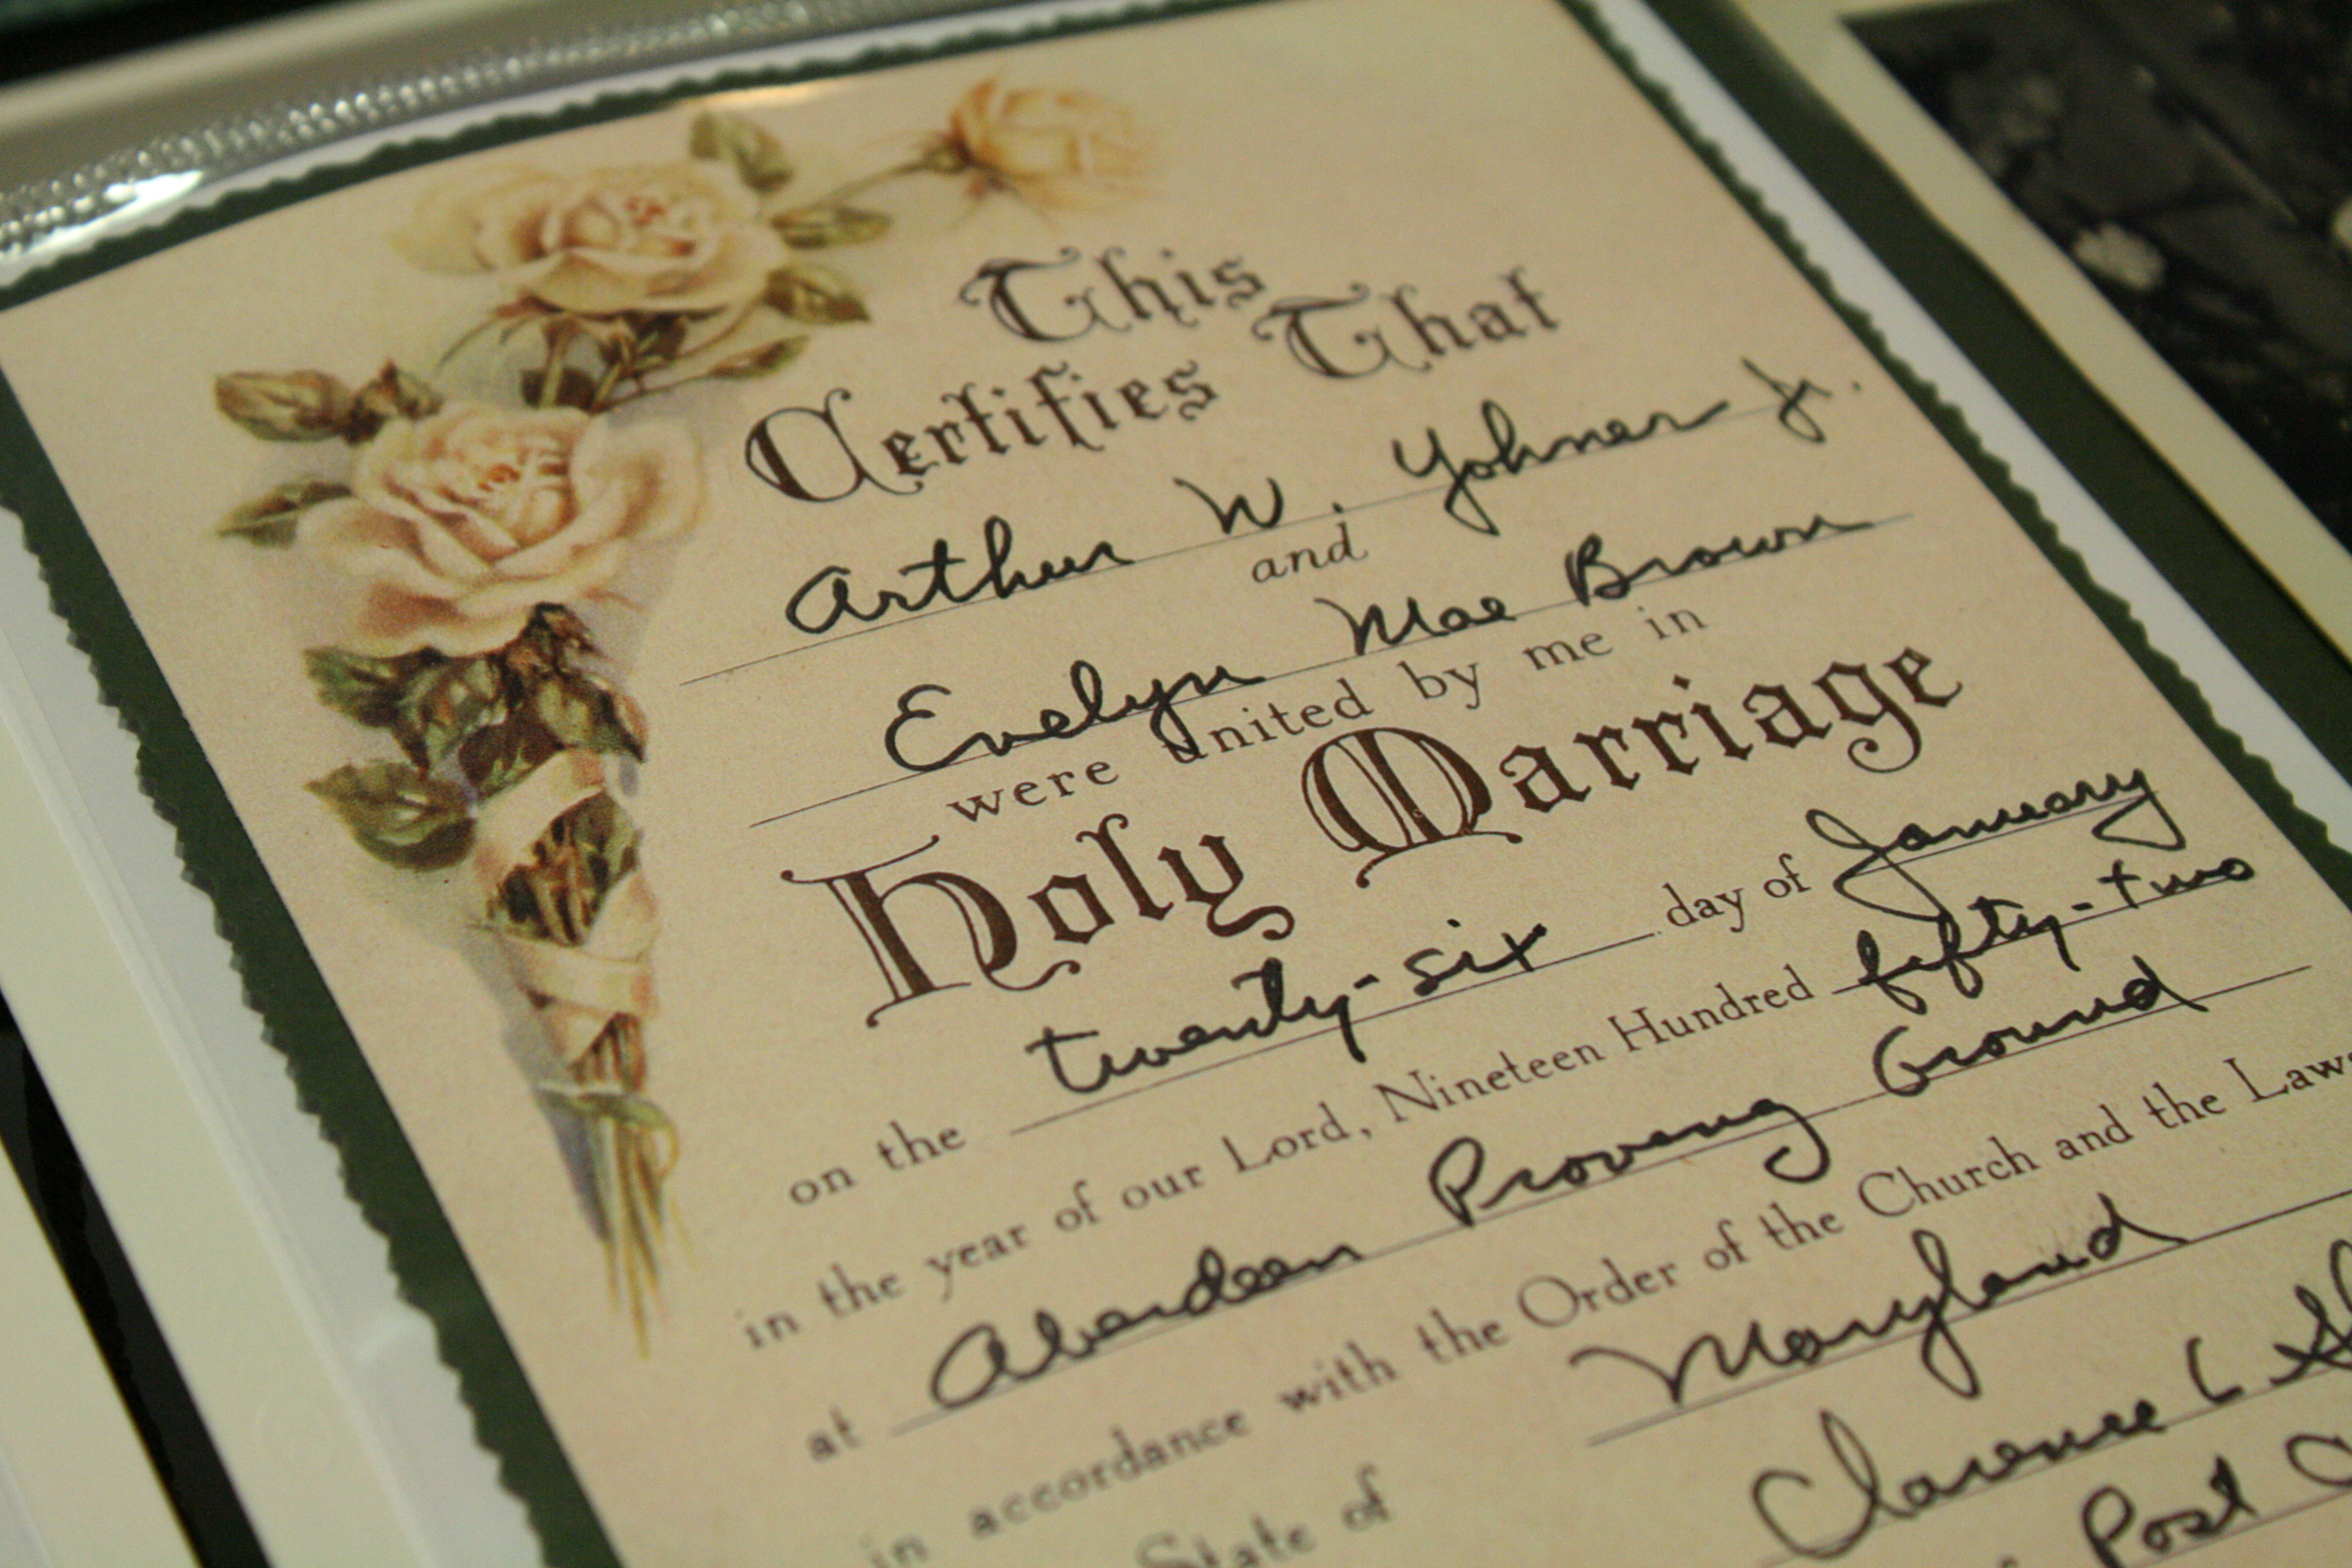 This
Certifies That
Arthur W. Yohner Jr.
and
Evelyn Mae Brown
were united by me in
Holy Marriage
on the twenty-six day of January
in the year of our Lord, Nineteen Hundred fifty-two
at Aberdeen Proving Ground
in accordance with the Order of the Church and the Laws
State of Maryland
Clarence L
Post